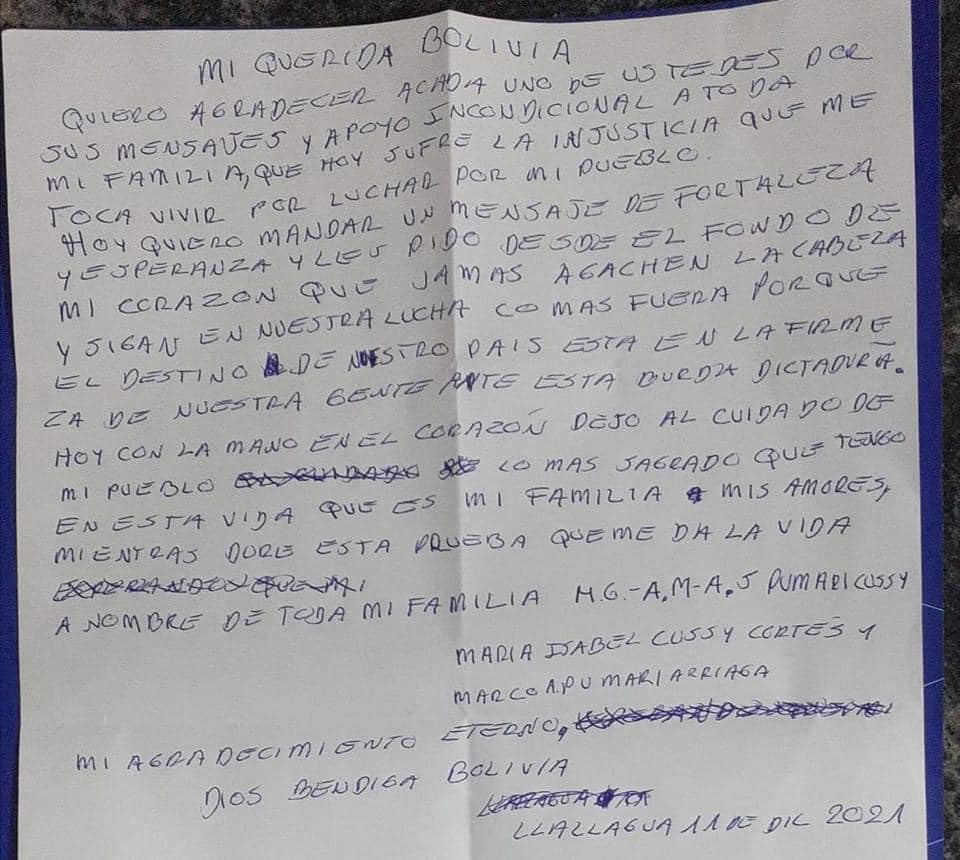 MI QUERIDA BOLIVIA
QUIERO AGRADECER ACADA UNO DE USTEDES POR
SUS MENSAJES Y APOYO INCONDICIONAL A TODA
MI FAMILIA, QUE HOY SUFRE LA INJUSTICIA QUE ME
TOCA VIVIR POR LUCHAR POR MI PUEBLO.
HOY QUIERO MANDAR UN MENSAJE DE FORTALEZA
Y ESPERANZA Y LES PIDO DESDE EL FONDO DE
MI CORAZON QUE JAMAS AGACHEN LA CABEZA
Y SIGAN EN NUESTRA LUCHA CO MAS FUERA PORQUE
EL DESTINO DE NUESTRO PAIS ESTA EN LA FIRME
ZA DE NUESTRA GENTE ANTE ESTA BURDA DICTADURA.
HOY CON LA MANO EN EL CORAZÓN DEJO AL CUIDADO DE
MI PUEBLO LO MAS SAGRADO QUE TENGO
EN ESTA VIDA QUE ES MI FAMILIA MIS AMORES,
MIENTRAS DURE ESTA PRUEBA QUE ME DA LA VIDA
A NOMBRE DE TODA MI FAMILIA M.G.-A.M-A.J PUMARI CUSSY
MARIA ISABEL CUSSY CORTÉS Y
MARCO A. PUMARI ARRIAGA
MI AGRADECIMIENTO ETERNO,
DIOS BENDIGA BOLIVIA
LLALLAGUA 11 DE DIC 2021